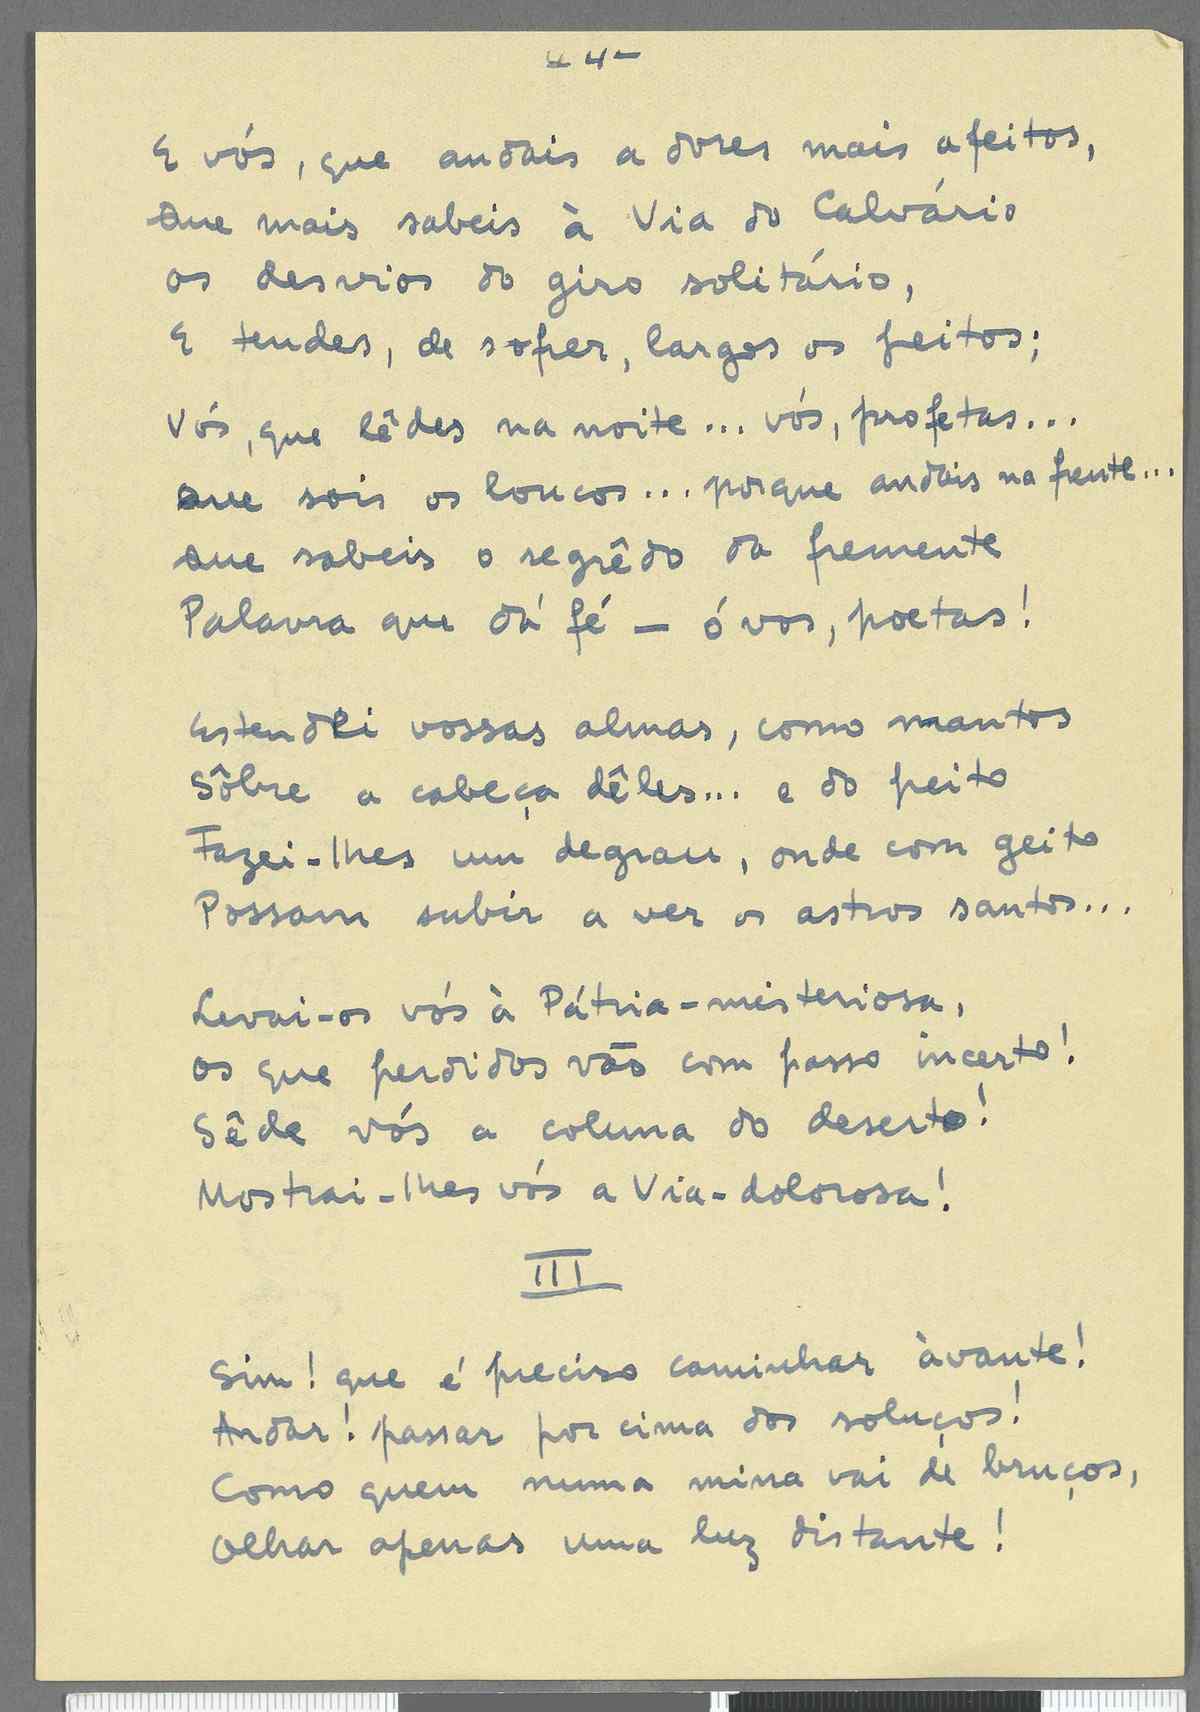 - 4 -
E vós, que andais a dores mais afeitos,
Que mais sabeis à Via do Calvário
os desvios do giro solitário,
E tendes, de sofrer, largos os peitos;
Vós, que lêdes na noite... vós, profetas...
Que sois os loucos... porque andais na frente...
Que sabeis o segrêdo da fremente
Palavra que dá fé — ó vos, poetas!
Estendei vossas almas, como mantos
Sôbre a cabeça dêles... e do peito
Fazei-lhes um degrau, onde com geito
Possam subir a ver os astros santos...
Levai-os vós à Pátria-misteriosa,
Os que perdidos vão com passo incerto!
Sêde vós a coluna do deserto!
Mostrai-lhes vós a Via-dolorosa!
III
Sim! que é preciso caminhar àvante!
Andar! passar por cima dos soluços!
Como quem numa mina vai de bruços,
Olhar apenas uma luz distante!